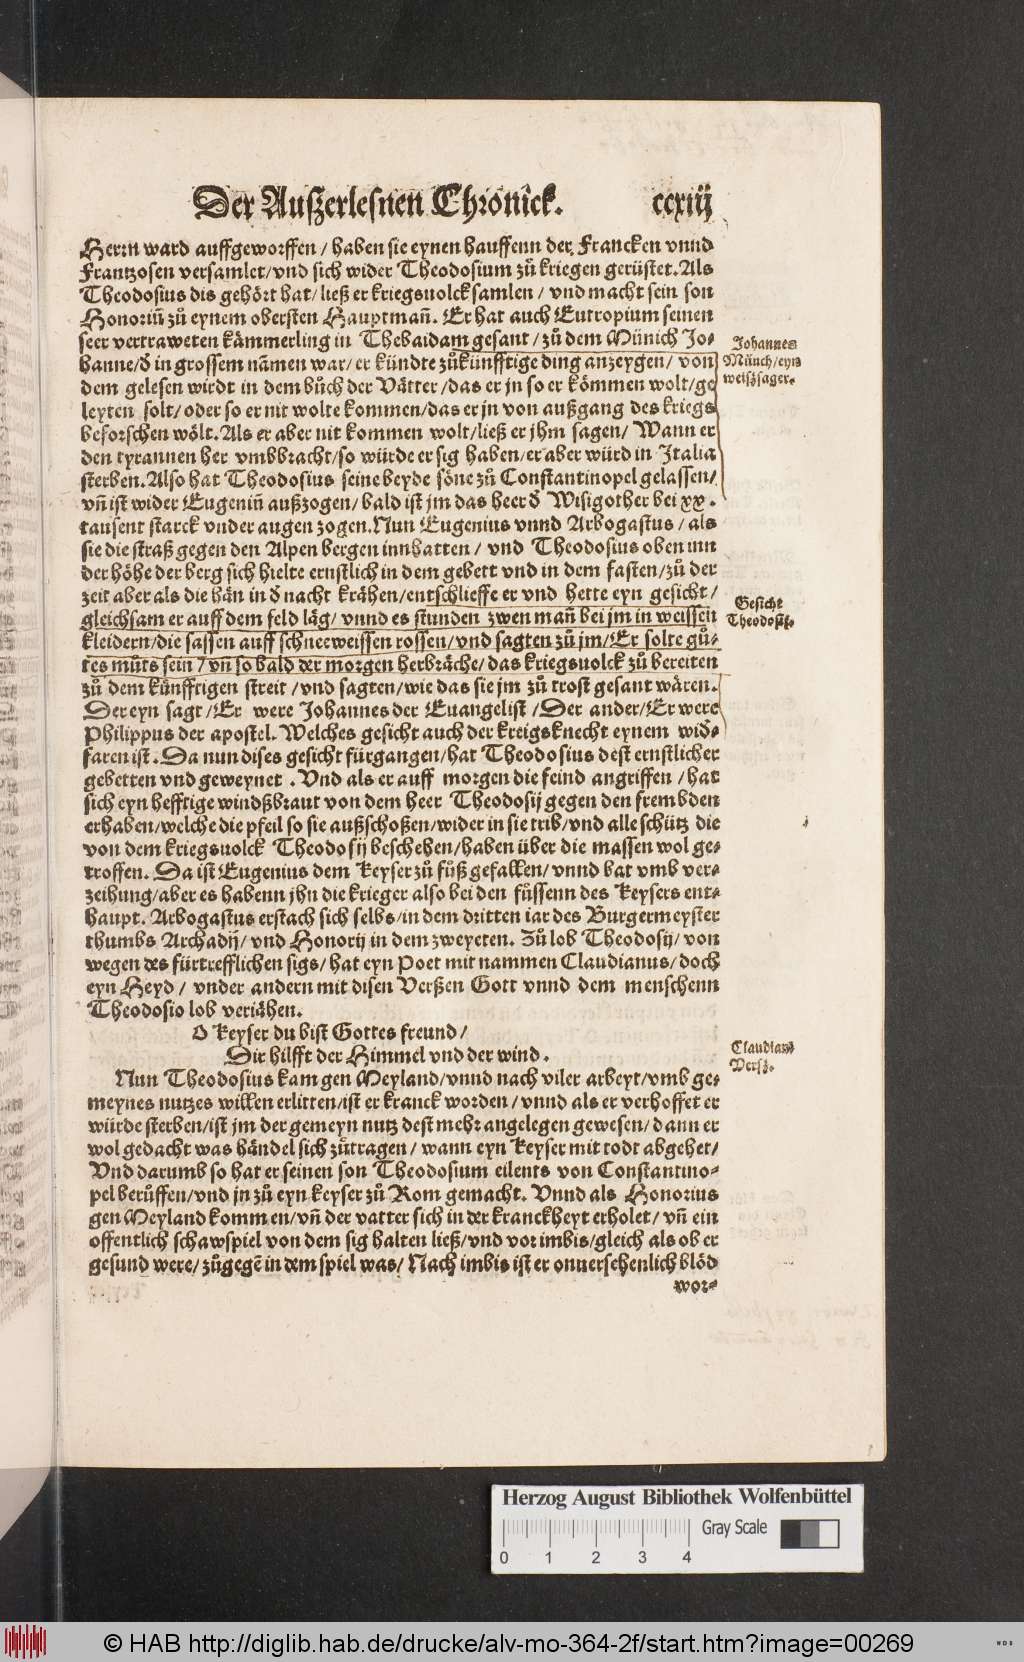 Der Außerlesnen Chronick. ccxiij
Herrn ward auffgeworffen / haben sie eynen hauffenn der Francken vnnd
Frantzosen versamlet/vnd sich wider Theodosium zů kriegen gerüstet. Als
Theodosius dis gehört hat/ließ er kriegsuolck samlen / vnd macht sein son
Honoriū zů eynem obersten Hauptmañ. Er hat auch Eutropium seinen
seer vertraweten kämmerling in Thebaidam gesant/ zů dem Münich Jo-
hanne/ď in grossem nāmen war/er kündte zůkünfftige ding anzeygen/ von
dem gelesen wirdt in dem bůch der Vätter /das er jn so er kömmen wolt/ge
leyten solt/ oder so er nit wolte kommen/das er jn von außgang des kriegs
beforschen wölt. Als er aber nit kommen wolt/ließ er jhm sagen/ Wann er
den tyrannen her vmbbracht/so würde er sig haben/er aber würd in Italia
sterben. Also hat Theodosius seine beyde söne zů Constantinopel gelassen/
vñ ist wider Eugeniū außzogen/ bald ist jm das heer ď Wisigother bei xx.
tausent starck vnder augen zogen. Nun Eugenius vnnd Arbogastus / als
sie die straß gegen den Alpen bergen innhatten / vnd Theodosius oben inn
der höhe der berg sich hielte ernstlich in dem gebett vnd in dem fasten/zů der
zeit aber als die hän in ď nacht krähen/entschlieffe er vnd hette eyn gesicht/
gleichsam er auff dem feld läg/ vnnd es stunden zwen mañ bei jm in weissen
kleidern/die sassen auff schneeweissen rossen/vnd sagten zů jm/Er solte gů-
tes můts sein / vñ so bald der morgen herbräche/das kriegsuolck zů bereiten
zů dem künfftigen streit /vnd sagten/wie das sie jm zů trost gesant wären.
Der eyn sagt /Er were Johannes der Euangelist /Der ander/Er were
Philippus der apostel. Welches gesicht auch der kreigsknecht eynem wid-
faren ist. Da nun dises gesicht fürgangen/hat Theodosius dest ernstlicher
gebetten vnd geweynet . Vnd als er auff morgen die feind angriffen /hat
sich eyn hefftige windßbraut von dem heer Theodosij gegen den frembden
erhaben/welche die pfeil so sie außschoßen/wider in sie trib/vnd alle schütz die
von dem kriegsuolck Theodosij beschehen/haben über die massen wol ge-
troffen. Da ist Eugenius dem Keyser zů fůß gefallen/ vnnd bat vmb ver-
zeihung/aber es habenn jhn die krieger also bei den füssenn des Keysers ent-
haupt. Arbogastus erstach sich selbs/in dem dritten iar des Burgermeyster
thumbs Archadij/ vnd Honorij in dem zweyeten. Zů lob Theodosij/ von
wegen des fürtrefflichen sigs/ hat eyn Poet mit nammen Claudianus/doch
eyn Heyd / vnder andern mit disen Verßen Gott vnnd dem menschenn
Theodosio lob veriähen.
O Keyser du bist Gottes freund/
Dir hilfft der Himmel vnd der wind.
Nun Theodosius kam gen Meyland/vnnd nach viler arbeyt/vmb ge-
meynes nutzes willen erlitten/ist er kranck worden/vnnd als er verhoffet er
würde sterben/ist jm der gemeyn nutz dest mehr angelegen gewesen/dann er
wol gedacht was händel sich zůtragen/ wann eyn Keyser mit todt abgehet/
Vnd darumb so hat er seinen son Theodosium eilents von Constantino-
pel berůffen/vnd jn zů eyn keyser zů Rom gemacht. Vnnd als Honorius
gen Meyland kommen/vñ der vatter sich in der kranckheyt erholet/ vñ ein
offentlich schawspiel von dem sig halten ließ/vnd vor imbis/gleich als ob er
gesund were/ zůgegē in dem spiel was/ Nach imbis ist er onuersehenlich blöd
wor-
Johannes
Münch/eyn
weißsager.
Gesicht
Theodosij.
Claudiani
Verß.
Herzog August Bibliothek Wolfenbüttel
Gray Scale
0 1 2 3 4
© HAB http://diglib.hab.de/drucke/alv-mo-364-2f/start.htm?image=00269